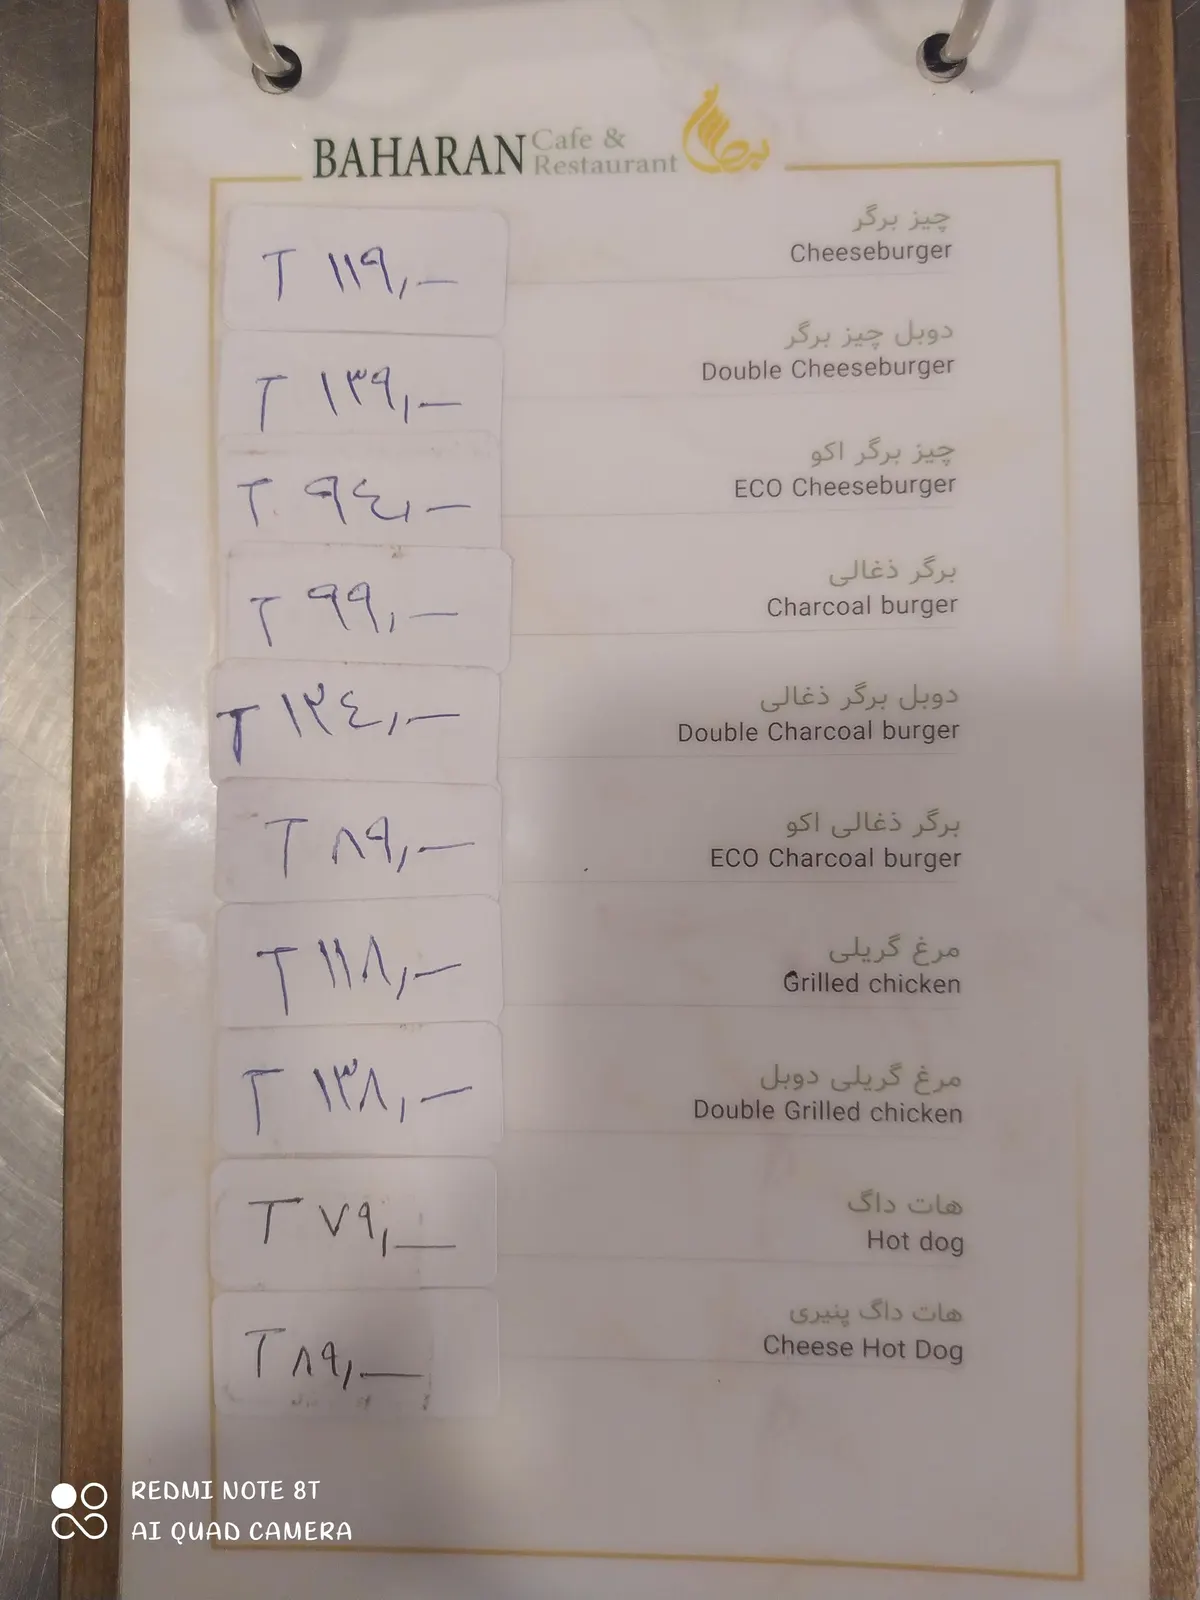 BAHARAN Cafe & Restaurant
چیز برگر
Cheeseburger
T ۱۱۹,—
دوبل چیز برگر
Double Cheeseburger
T ۱۳۹,—
چیز برگر اکو
ECO Cheeseburger
T ۹٤,—
برگر ذغالی
Charcoal burger
T ۹۹,—
دوبل برگر ذغالی
Double Charcoal burger
T ۱۲٤,—
برگر ذغالی اکو
ECO Charcoal burger
T ۸۹,—
مرغ گریلی
Grilled chicken
T ۱۱۸,—
مرغ گریلی دوبل
Double Grilled chicken
T ۱۳۸,—
هات داگ
Hot dog
T ۷۹,—
هات داگ پنیری
Cheese Hot Dog
T ۸۹,—
REDMI NOTE 8T
AI QUAD CAMERA